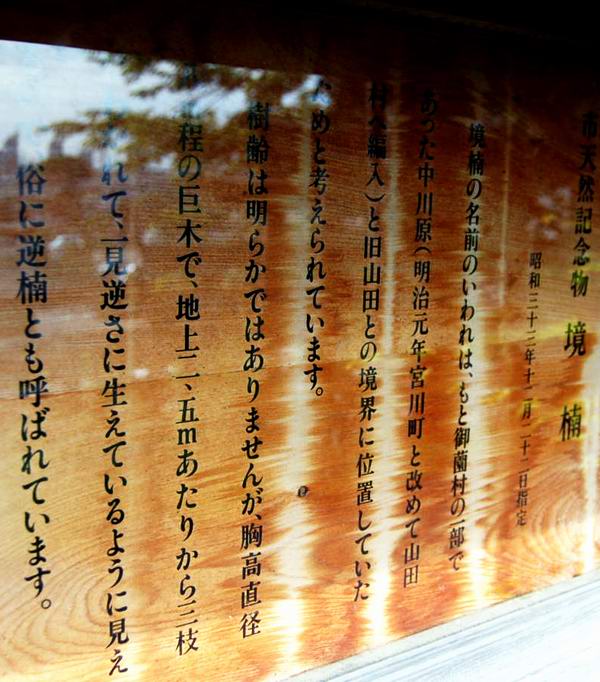 市天然記念物 境楠
昭和三十三年十二月二十二日指定
境楠の名前のいわれは、もと御薗村の一部で
あった中川原(明治元年宮川町と改めて山田
村へ編入)と旧山田との境界に位置していた
ためと考えられています。
樹齢は明らかではありませんが、胸高直径
程の巨木で、地上二、五mあたりから三枝
れて、一見逆さに生えているように見え
俗に逆楠とも呼ばれています。